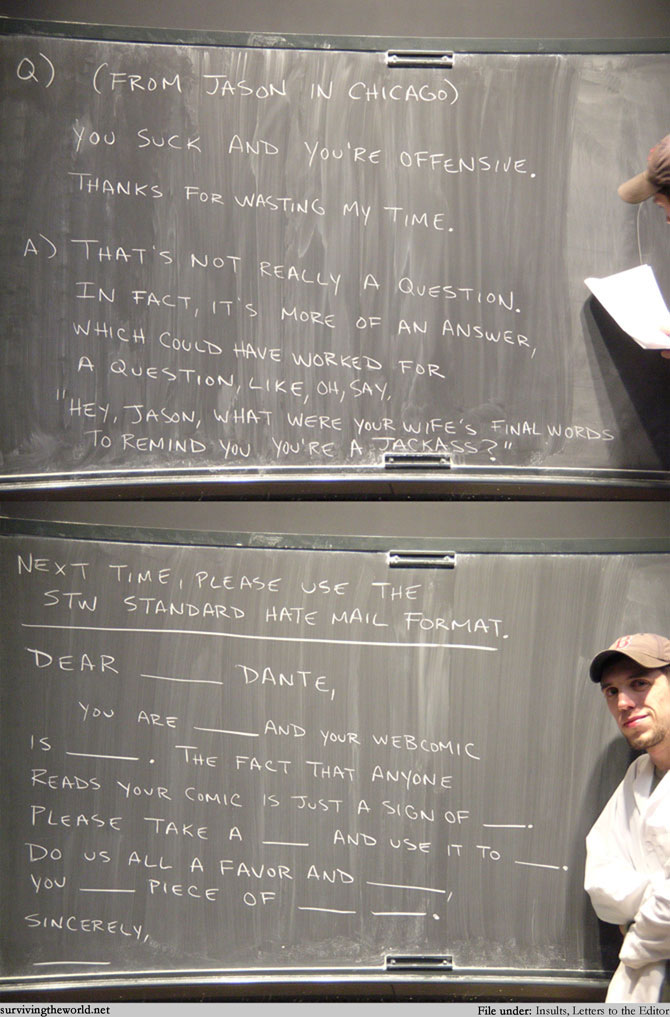 Q) (FROM JASON IN CHICAGO)
YOU SUCK AND YOU'RE OFFENSIVE.
THANKS FOR WASTING MY TIME.
A) THAT'S NOT REALLY A QUESTION.
IN FACT, IT'S MORE OF AN ANSWER,
WHICH COULD HAVE WORKED FOR
A QUESTION, LIKE, OH, SAY,
"HEY, JASON, WHAT WERE YOUR WIFE'S FINAL WORDS
TO REMIND YOU YOU'RE A JACKASS?"
NEXT TIME, PLEASE USE THE
STW STANDARD HATE MAIL FORMAT.
DEAR ______ DANTE,
YOU ARE ______ AND YOUR WEBCOMIC
IS ______. THE FACT THAT ANYONE
READS YOUR COMIC IS JUST A SIGN OF ____.
PLEASE TAKE A ____ AND USE IT TO ____.
DO US ALL A FAVOR AND ______,
YOU ____ PIECE OF ____ ____.
SINCERELY,
______
survivingtheworld.net
File under: Insults, Letters to the Editor